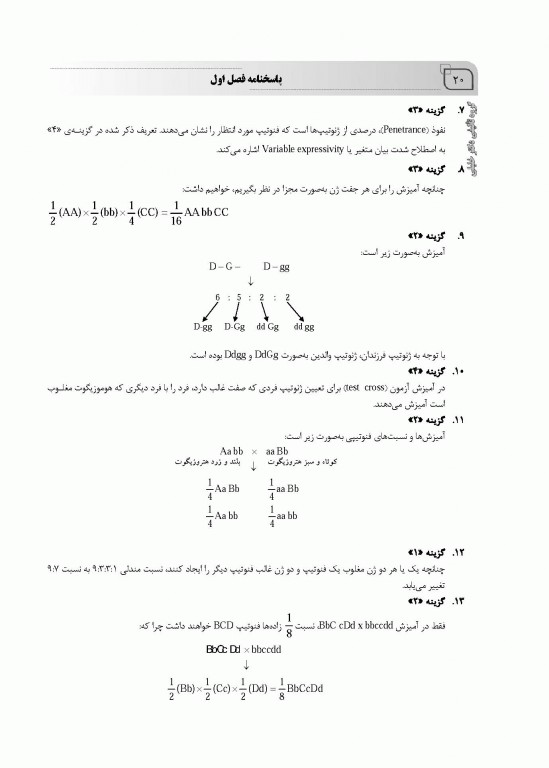 ۲۰
پاسخنامه فصل اول
۷. گزینه «۳»
نفوذ (Penetrance)، درصدی از ژنوتیپ‌ها است که فنوتیپ مورد انتظار را نشان می‌دهند. تعریف ذکر شده در گزینـه‌ی «۴»
به اصطلاح شدت بیان متغیر یا Variable expressivity اشاره می‌کند.
۸. گزینه «۳»
چنانچه آمیزش را برای هر جفت ژن به‌صورت مجزا در نظر بگیریم، خواهیم داشت:
1/2 (AA) × 1/2 (bb) × 1/4 (CC) = 1/16 AA bb CC
۹. گزینه «۲»
آمیزش به‌صورت زیر است:
D – G – D – gg
↓
6 : 5 : 2 : 2
D-gg D-Gg dd Gg dd gg
با توجه به ژنوتیپ فرزندان، ژنوتیپ والدین به‌صورت DdGg و Ddgg بوده است.
۱۰. گزینه «۴»
در آمیزش آزمون (test cross) برای تعیین ژنوتیپ فردی که صفت غالب دارد، فرد را با فرد دیگری که هوموزیگوت مغلـوب
است آمیزش می‌دهند.
۱۱. گزینه «۲»
آمیزش‌ها و نسبت‌های فنوتیپی به‌صورت زیر است:
Aa bb × aa Bb
بلند و زرد هتروزیگوت ↓ کوتاه و سبز هتروزیگوت
1/4 Aa Bb 1/4 aa Bb
1/4 Aa bb 1/4 aa bb
۱۲. گزینه «۱»
چنانچه یک یا هر دو ژن مغلوب یک فنوتیپ و دو ژن غالب فنوتیپ دیگر را ایجاد کنند، نسبت مندلی ۹:۳:۳:۱ به نسبت ۹:۷
تغییر می‌یابد.
۱۳. گزینه «۲»
فقط در آمیزش BbC cDd x bbccdd، نسبت 1/8 زاده‌ها فنوتیپ BCD خواهند داشت چرا که:
BbCc Dd × bbccdd
↓
1/2 (Bb) × 1/2 (Cc) × 1/2 (Dd) = 1/8 BbCcDd